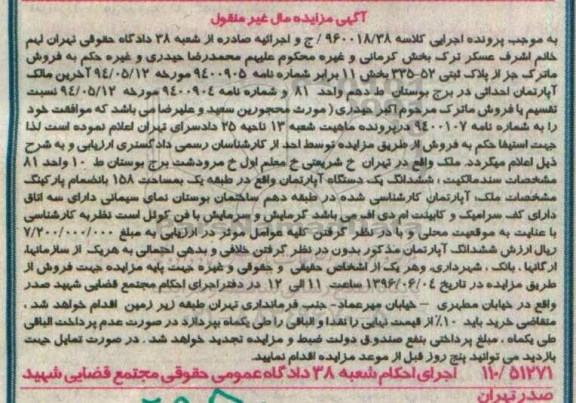 آگهی مزایده مال غیر منقول
به موجب پرونده اجرایی کلاسه ۹۶۰۰۱۸/۳۸ / ج و اجرائیه صادره از شعبه ۳۸ دادگاه حقوقی تهران لهم
خانم اشرف عسکر ترک بخش کرمانی و غیره محکوم علیهم محمدرضا حیدری و غیره حکم به فروش
ماترک جز از پلاک ثبتی ۵۲-۳۳۵ بخش ۱۱ برابر شماره نامه ۹۴۰۰۹۰۵ مورخه ۹۴/۰۵/۱۲ آخرین مالک
آپارتمان احداثی در برج بوستان ط دهم واحد ۸۱ و شماره نامه ۹۴۰۰۹۰۴ مورخه ۹۴/۰۵/۱۲ نسبت
تقسیم یا فروش ماترک مرحوم اکبر حیدری ( مورث محجورین سعید و علیرضا می باشد که موافقت خود
را به شماره نامه ۹۴۰۰۱۰۷ در پرونده ماهیت شعبه ۱۳ ناحیه ۲۵ دادسرای تهران اعلام نموده است لذا
جهت استیفا حکم به فروش از طریق مزایده توسط احد از کارشناسان رسمی دادگستری ارزیابی و به شرح
ذیل اعلام میگردد. ملک واقع در تهران خ شریعتی خ معلم اول خ مرودشت برج بوستان ط ۱۰ واحد ۸۱
مشخصات سند مالکیت ، ششدانگ یک دستگاه آپارتمان واقع در طبقه یک بمساحت ۱۵۸ بانضمام پارکینگ
مشخصات ملک، آپارتمان کارشناسی شده در طبقه دهم ساختمان بوستان نمای سیمانی دارای سه اتاق
دارای کف سرامیک و کابینت ام دی اف می باشد گرمایش و سرمایش با فن کوئل است نظریه کارشناسی
با عنایت به موقعیت محلی و با در نظر گرفتن کلیه عوامل موثر در ارزیابی به مبلغ ۷/۲۰۰/۰۰۰/۰۰۰
ریال ارزش ششدانگ آپارتمان مذکور بدون در نظر گرفتن خلافی و بدهی احتمالی به هریک از سازمانها،
ارگانها ، بانک ، شهرداری، وهر یک از اشخاص حقیقی و حقوقی و غیره جهت پایه مزایده جهت فروش از
طریق مزایده در تاریخ ۱۳۹۶/۰۶/۰۴ ساعت ۱۱ الی ۱۲ در دفتر اجرای احکام مجتمع قضایی شهید صدر
واقع در خیابان مطهری – خیابان میرعماد- جنب فرمانداری تهران طبقه زیر زمین اقدام خواهد شد ،
متقاضی خرید باید ۱۰٪ از قیمت نهایی را نقدا و الباقی را طی یکماه بپردازد در صورت عدم پرداخت الباقی
طی یکماه ، مبلغ پرداختی بنفع صندوق دولت ضبط و مزایده تجدید خواهد شد . در صورت تمایل جهت
بازدید می توانید پنج روز قبل از موعد مزایده اقدام نمایید.
۱۱۰/۵۱۲۷۱ اجرای احکام شعبه ۳۸ دادگاه عمومی حقوقی مجتمع قضایی شهید
صدر تهران